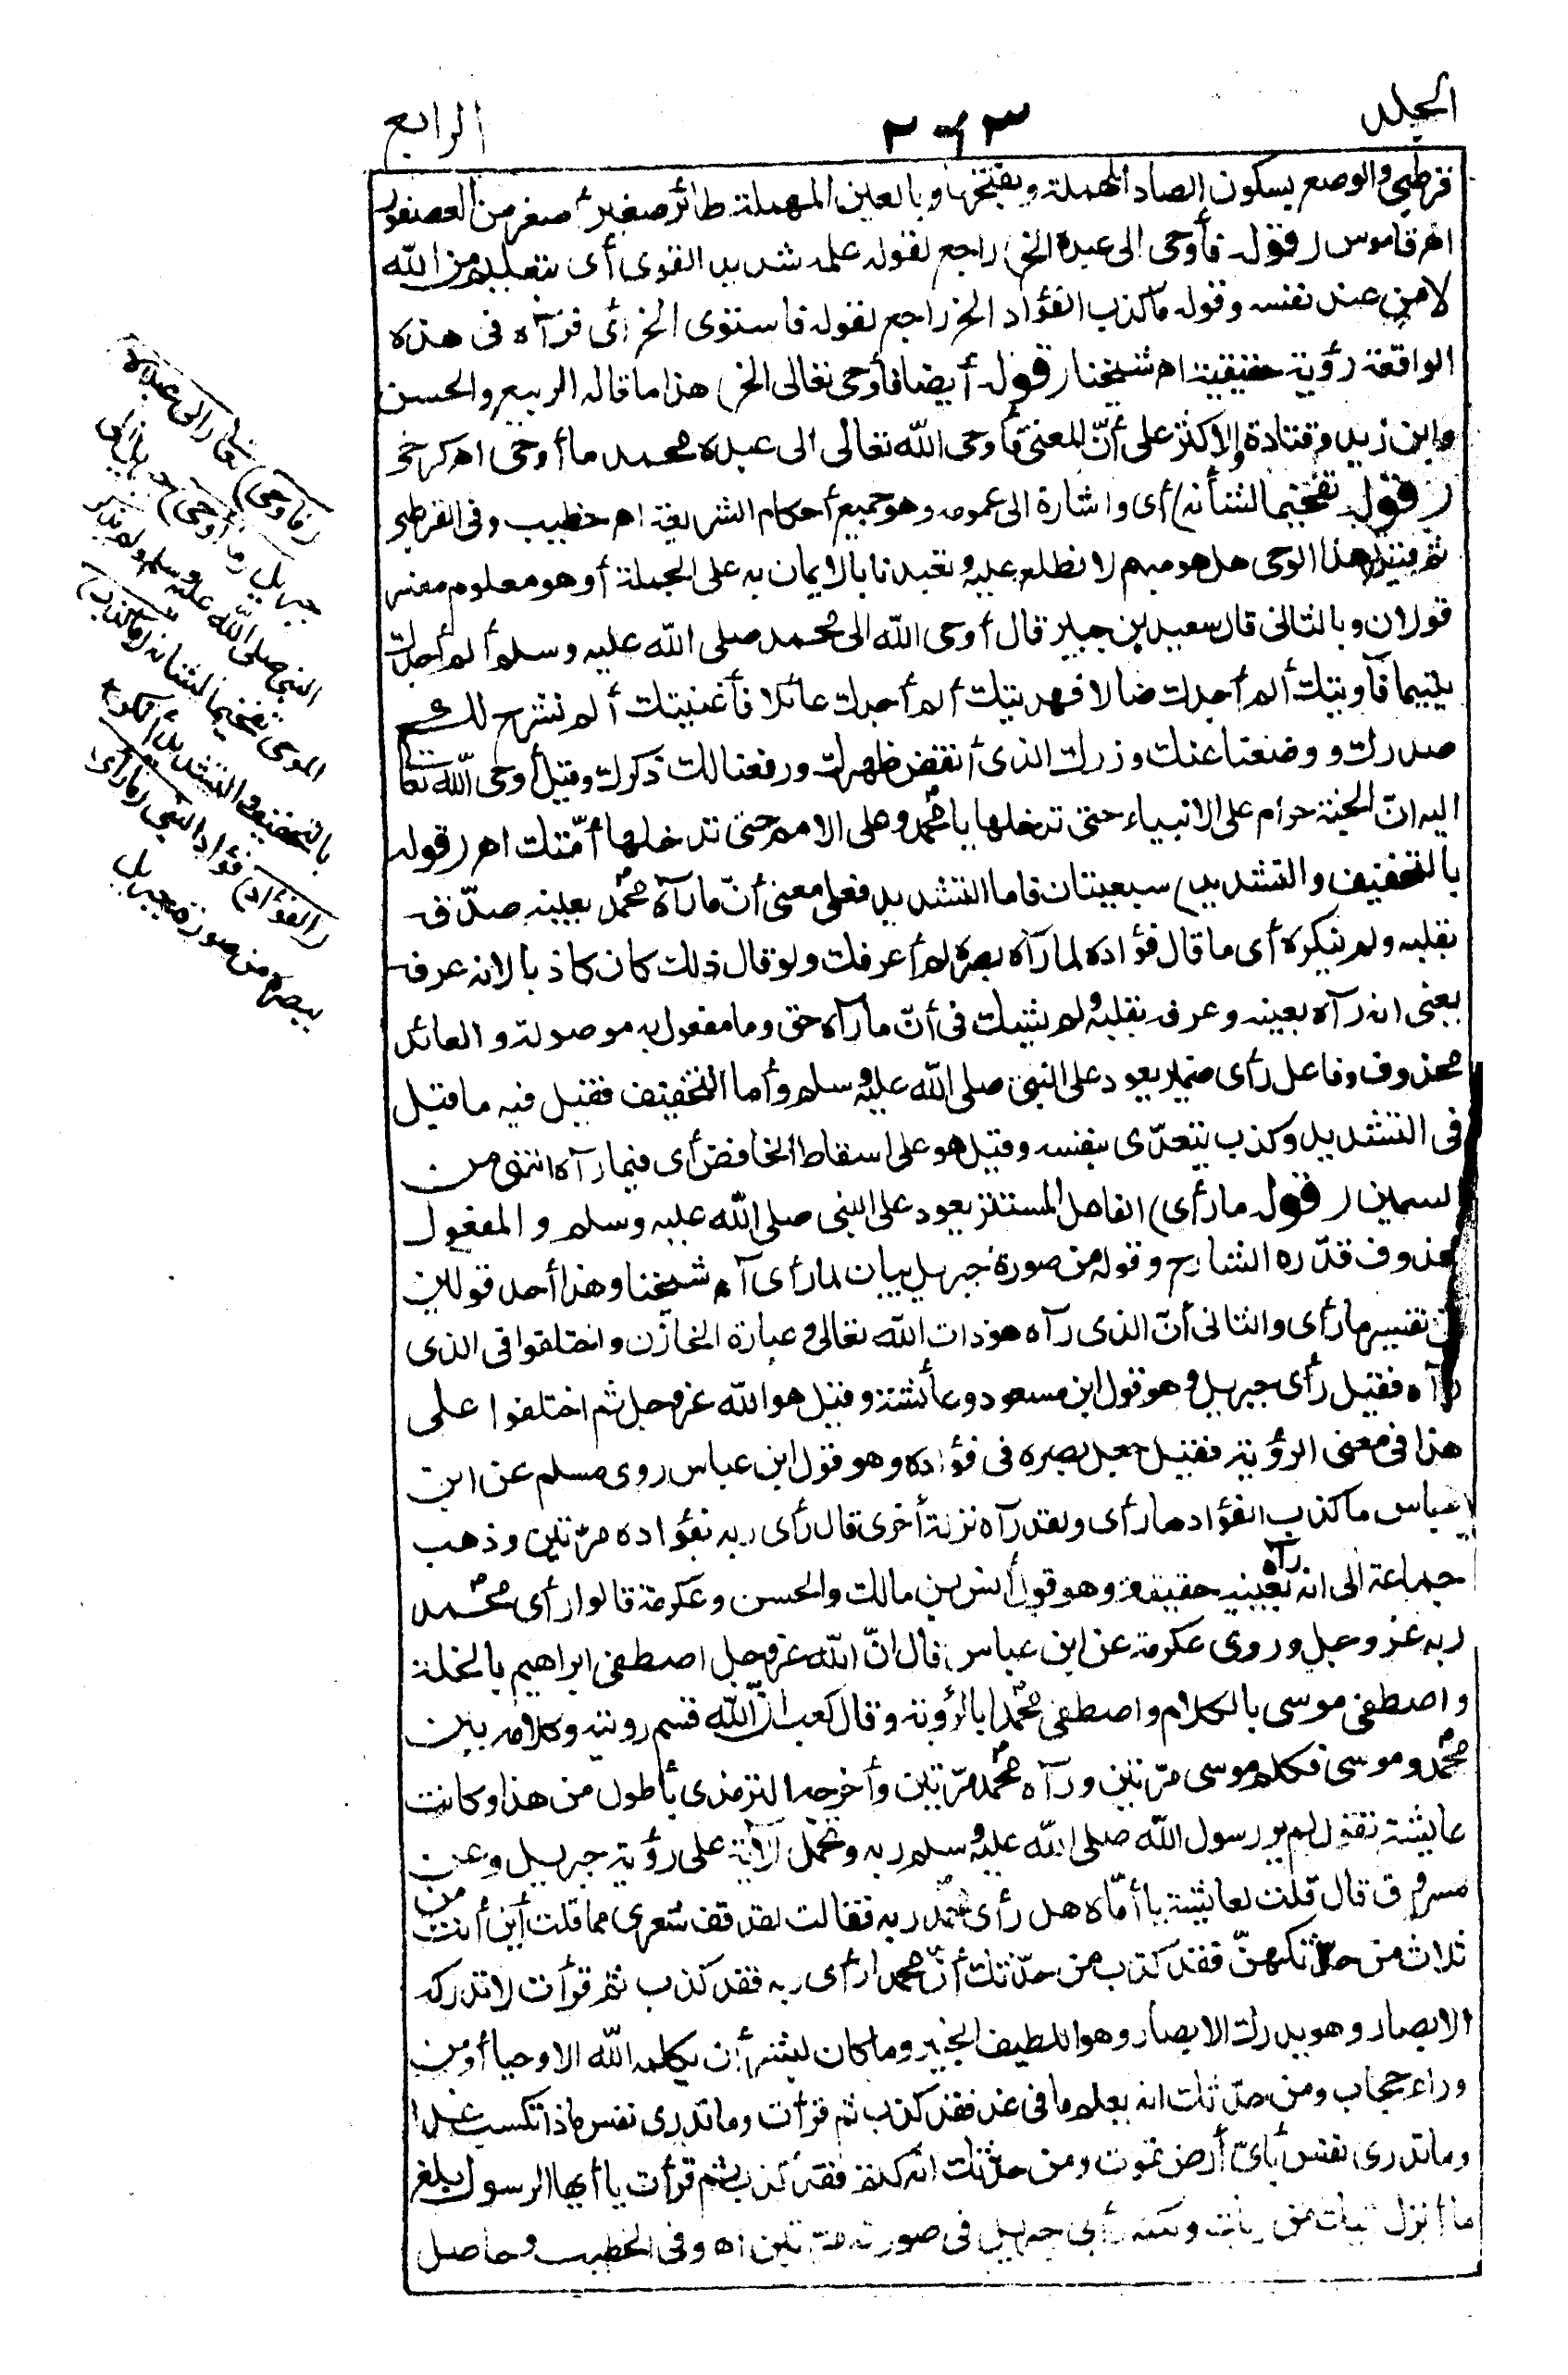 الجلد
٢٦٣
الرابع
قرطبي والوصع بسكون الصاد المهملة وبفتحها وبالعين المهملة طائر صغير أصغر من العصفور
اه قاموس (قوله فأوحى الى عبده الخ) راجع لقوله علمه شديد القوى أى بتعليم من الله
لا من عند نفسه وقوله ما كذب الفؤاد الخ راجع لقوله فاستوى الخ أى فرآه فى هذه
الواقعة رؤية حقيقية اه شيخنا (قوله أيضا فأوحى تعالى الخ) هذا ما قاله الربيع والحسن
وابن زيد وقتادة والاكثر على أنّ المعنى فأوحى الله تعالى الى عبده محمد ما أوحى اه كرخى
(قوله تفخيما لشأنه) أى واشارة الى عمومه وهو جميع أحكام الشريعة اه خطيب وفى القرطبى
ثم قيل هذا الوحى هل هو مبهم لا نطلع عليه وتعبدنا بالايمان به على الجملة أو هو معلوم مفسر
قولان وبالثانى قال سعيد بن جبير قال أوحى الله الى محمد صلى الله عليه وسلم ألم أجدك
يتيما فآويتك ألم أجدك ضالا فهديتك ألم أجدك عائلا فأغنيتك ألم نشرح لك
صدرك ووضعنا عنك وزرك الذى أنقض ظهرك ورفعنا لك ذكرك وقيل أوحى الله تعالى
اليه انّ الجنة حرام على الانبياء حتى تدخلها يا محمد وعلى الامم حتى تدخلها أمّتك اه (قوله
بالتخفيف والتشديد) سبعيتان فاما التشديد فعلى معنى أنّ ما رآه محمد بعينه صدّقه
بقلبه ولم ينكره أى ما قال فؤاده لما رآه بصره لم أعرفك ولو قال ذلك كان كاذبا لانه عرفه
يعنى انه رآه بعينه وعرفه بقلبه ولم يشك فى أنّ ما رآه حق وما مفعول به موصولة والعائد
محذوف وفاعل رأى ضمير يعود على النبى صلى الله عليه وسلم وأما التخفيف فقيل فيه ما قيل
فى التشديد وكذب يتعدّى بنفسه وقيل هو على اسقاط الخافض أى فيما رآه انتهى من
السمين (قوله ما رأى) الفاعل المستتر يعود على النبى صلى الله عليه وسلم والمفعول
محذوف قدّره الشارح وقوله من صورة جبريل بيان لما رأى اه شيخنا وهذا أحد قولين
فى تفسير ما رأى والثانى أنّ الذى رآه هو ذات الله تعالى وعبارة الخازن واختلفوا فى الذى
رآه فقيل رأى جبريل وهو قول ابن مسعود وعائشة وقيل هو الله عز وجل ثم اختلفوا على
هذا فى معنى الرؤية فقيل جعل بصره فى فؤاده وهو قول ابن عباس روى مسلم عن ابن
عباس ما كذب الفؤاد ما رأى ولقد رآه نزلة أخرى قال رأى ربه بفؤاده مرّتين وذهب
جماعة الى انه رآه بعينه حقيقة وهو قول أنس بن مالك والحسن وعكرمة قالوا رأى محمد
ربه عز وجل وروى عكرمة عن ابن عباس قال انّ الله عز وجل اصطفى ابراهيم بالخلة
واصطفى موسى بالكلام واصطفى محمدا بالرؤية وقال كعب انّ الله قسم رؤيته وكلامه بين
محمد وموسى فكلم موسى مرّتين ورآه محمد مرّتين وأخرجه الترمذى بأطول من هذا وكانت
عايشة تقول لم ير رسول الله صلى الله عليه وسلم ربه وتحمل الآية على رؤية جبريل وعن
مسروق قال قلت لعايشة يا أمّاه هل رأى محمد ربه فقالت لقد قف شعرى مما قلت أين أنت من
ثلاث من حدّثكهنّ فقد كذب من حدّثك أنّ محمدا رأى ربه فقد كذب ثم قرأت لا تدركه
الابصار وهو يدرك الابصار وهو اللطيف الخبير وما كان لبشر أن يكلمه الله الا وحيا أو من
وراء حجاب ومن حدّثك انه يعلم ما فى غد فقد كذب ثم قرأت وما تدرى نفس ماذا تكسب غدا
وما تدرى نفس بأىّ أرض تموت ومن حدّثك انه كتم فقد كذب ثم قرأت يا أيها الرسول بلغ
ما أنزل اليك من ربك ولكنه رأى جبريل فى صورته مرّتين اه وفى الخطيب وحاصل
(فأوحى) تعالى (الى عبده)
جبريل (ما أوحى) جبريل الى
النبى صلى الله عليه وسلم ولم يذكر
الموحى تفخيما لشأنه (ما كذب)
بالتخفيف والتشديد أنكر
(الفؤاد) فؤاد النبى (ما رأى)
ببصره من صورة جبريل